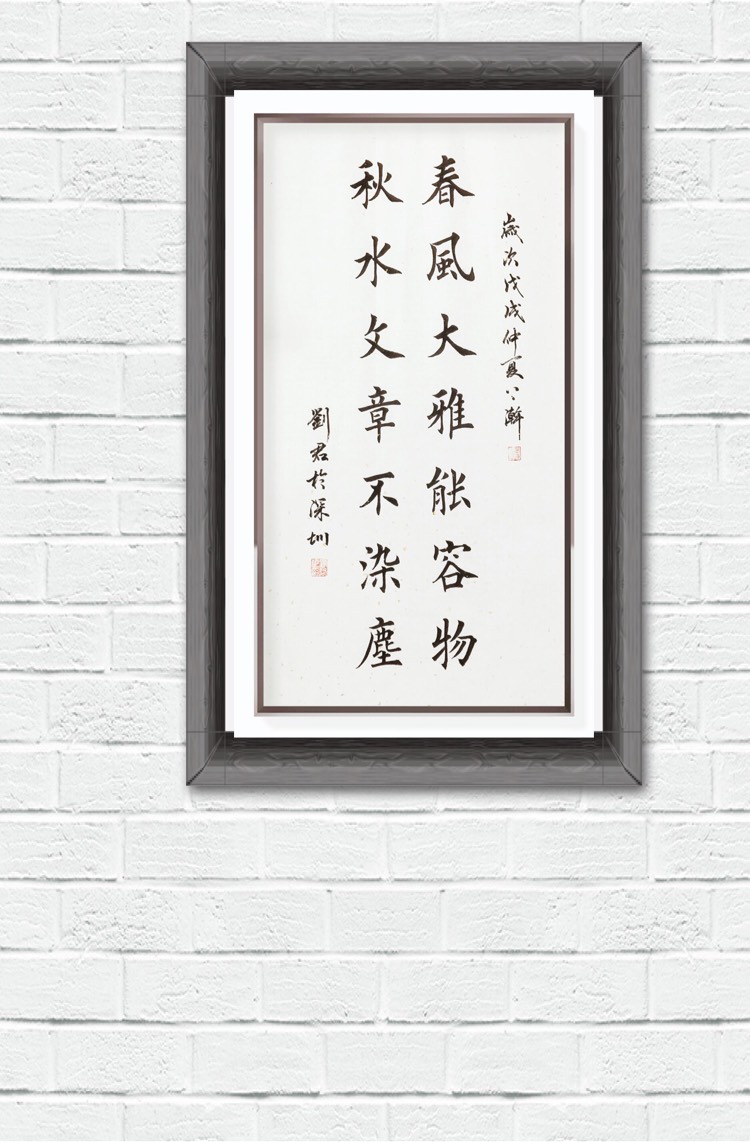 歲次戊戌仲夏澣
春風大雅能容物
秋水文章不染塵
劉君於深圳